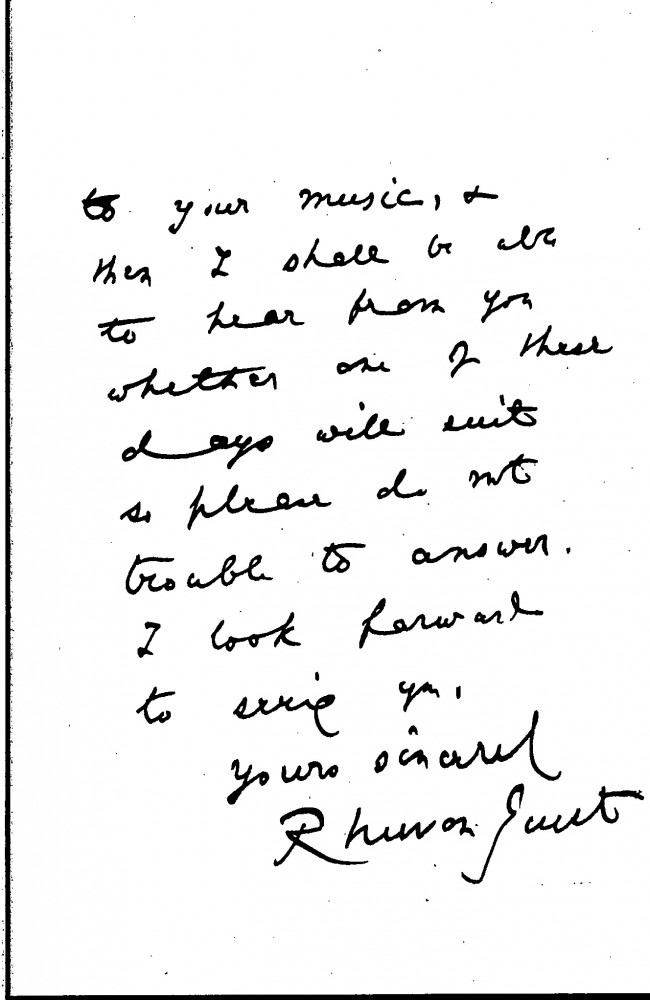 to your music, &
then I shall be able
to hear from you
whether one of these
days will suit
so please do not
trouble to answer.
I look forward
to seeing you,
yours sincerely
Rhuvon Guest